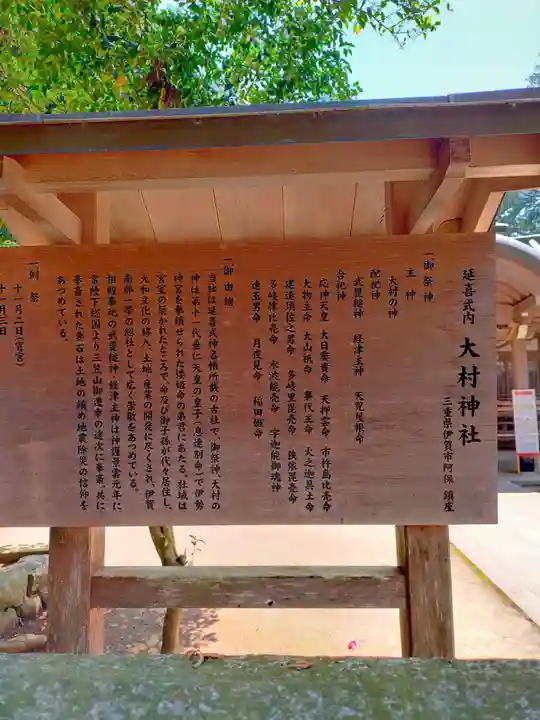 延喜式内 大村神社
三重県伊賀市阿保 鎮座
一御祭神
主神
大村の神
配祀神
武甕槌神 経津主神 天児屋根命
合祀神
応神天皇 大日孁貴命 天押雲命 市杵島比売命
大物主命 大山祇命 事代主命 火之迦具土命
建速須佐之男命 多岐里毘売命 狭依毘売命
多岐椎比売命 水波能売命 宇迦能御魂神
速玉男命 月夜見命 稲田姫命
一御由緒
当社は延喜式神名帳所載の古社で、御祭神、大村の
神は第十一代垂仁天皇の皇子(息速別命)で伊勢
神宮を奉鎮せられた倭姫命の弟君にあたる。社域は
宮室の築かれたところで、命及び御子孫が代々居住し、
大和文化の移入、土地・産業の開発に尽くされ、伊賀
南部一帯の総社として広く崇敬をあつめている。
相殿奉祀の武甕槌神・経津主神は神護景雲元年に
常陸下総国より三笠山御遷幸の途次に奉斎、共に
奉斎された要石は土地の鎮め地震除災の信仰を
あつめている。
一例祭
十一月二日(宵宮)
十一月三日